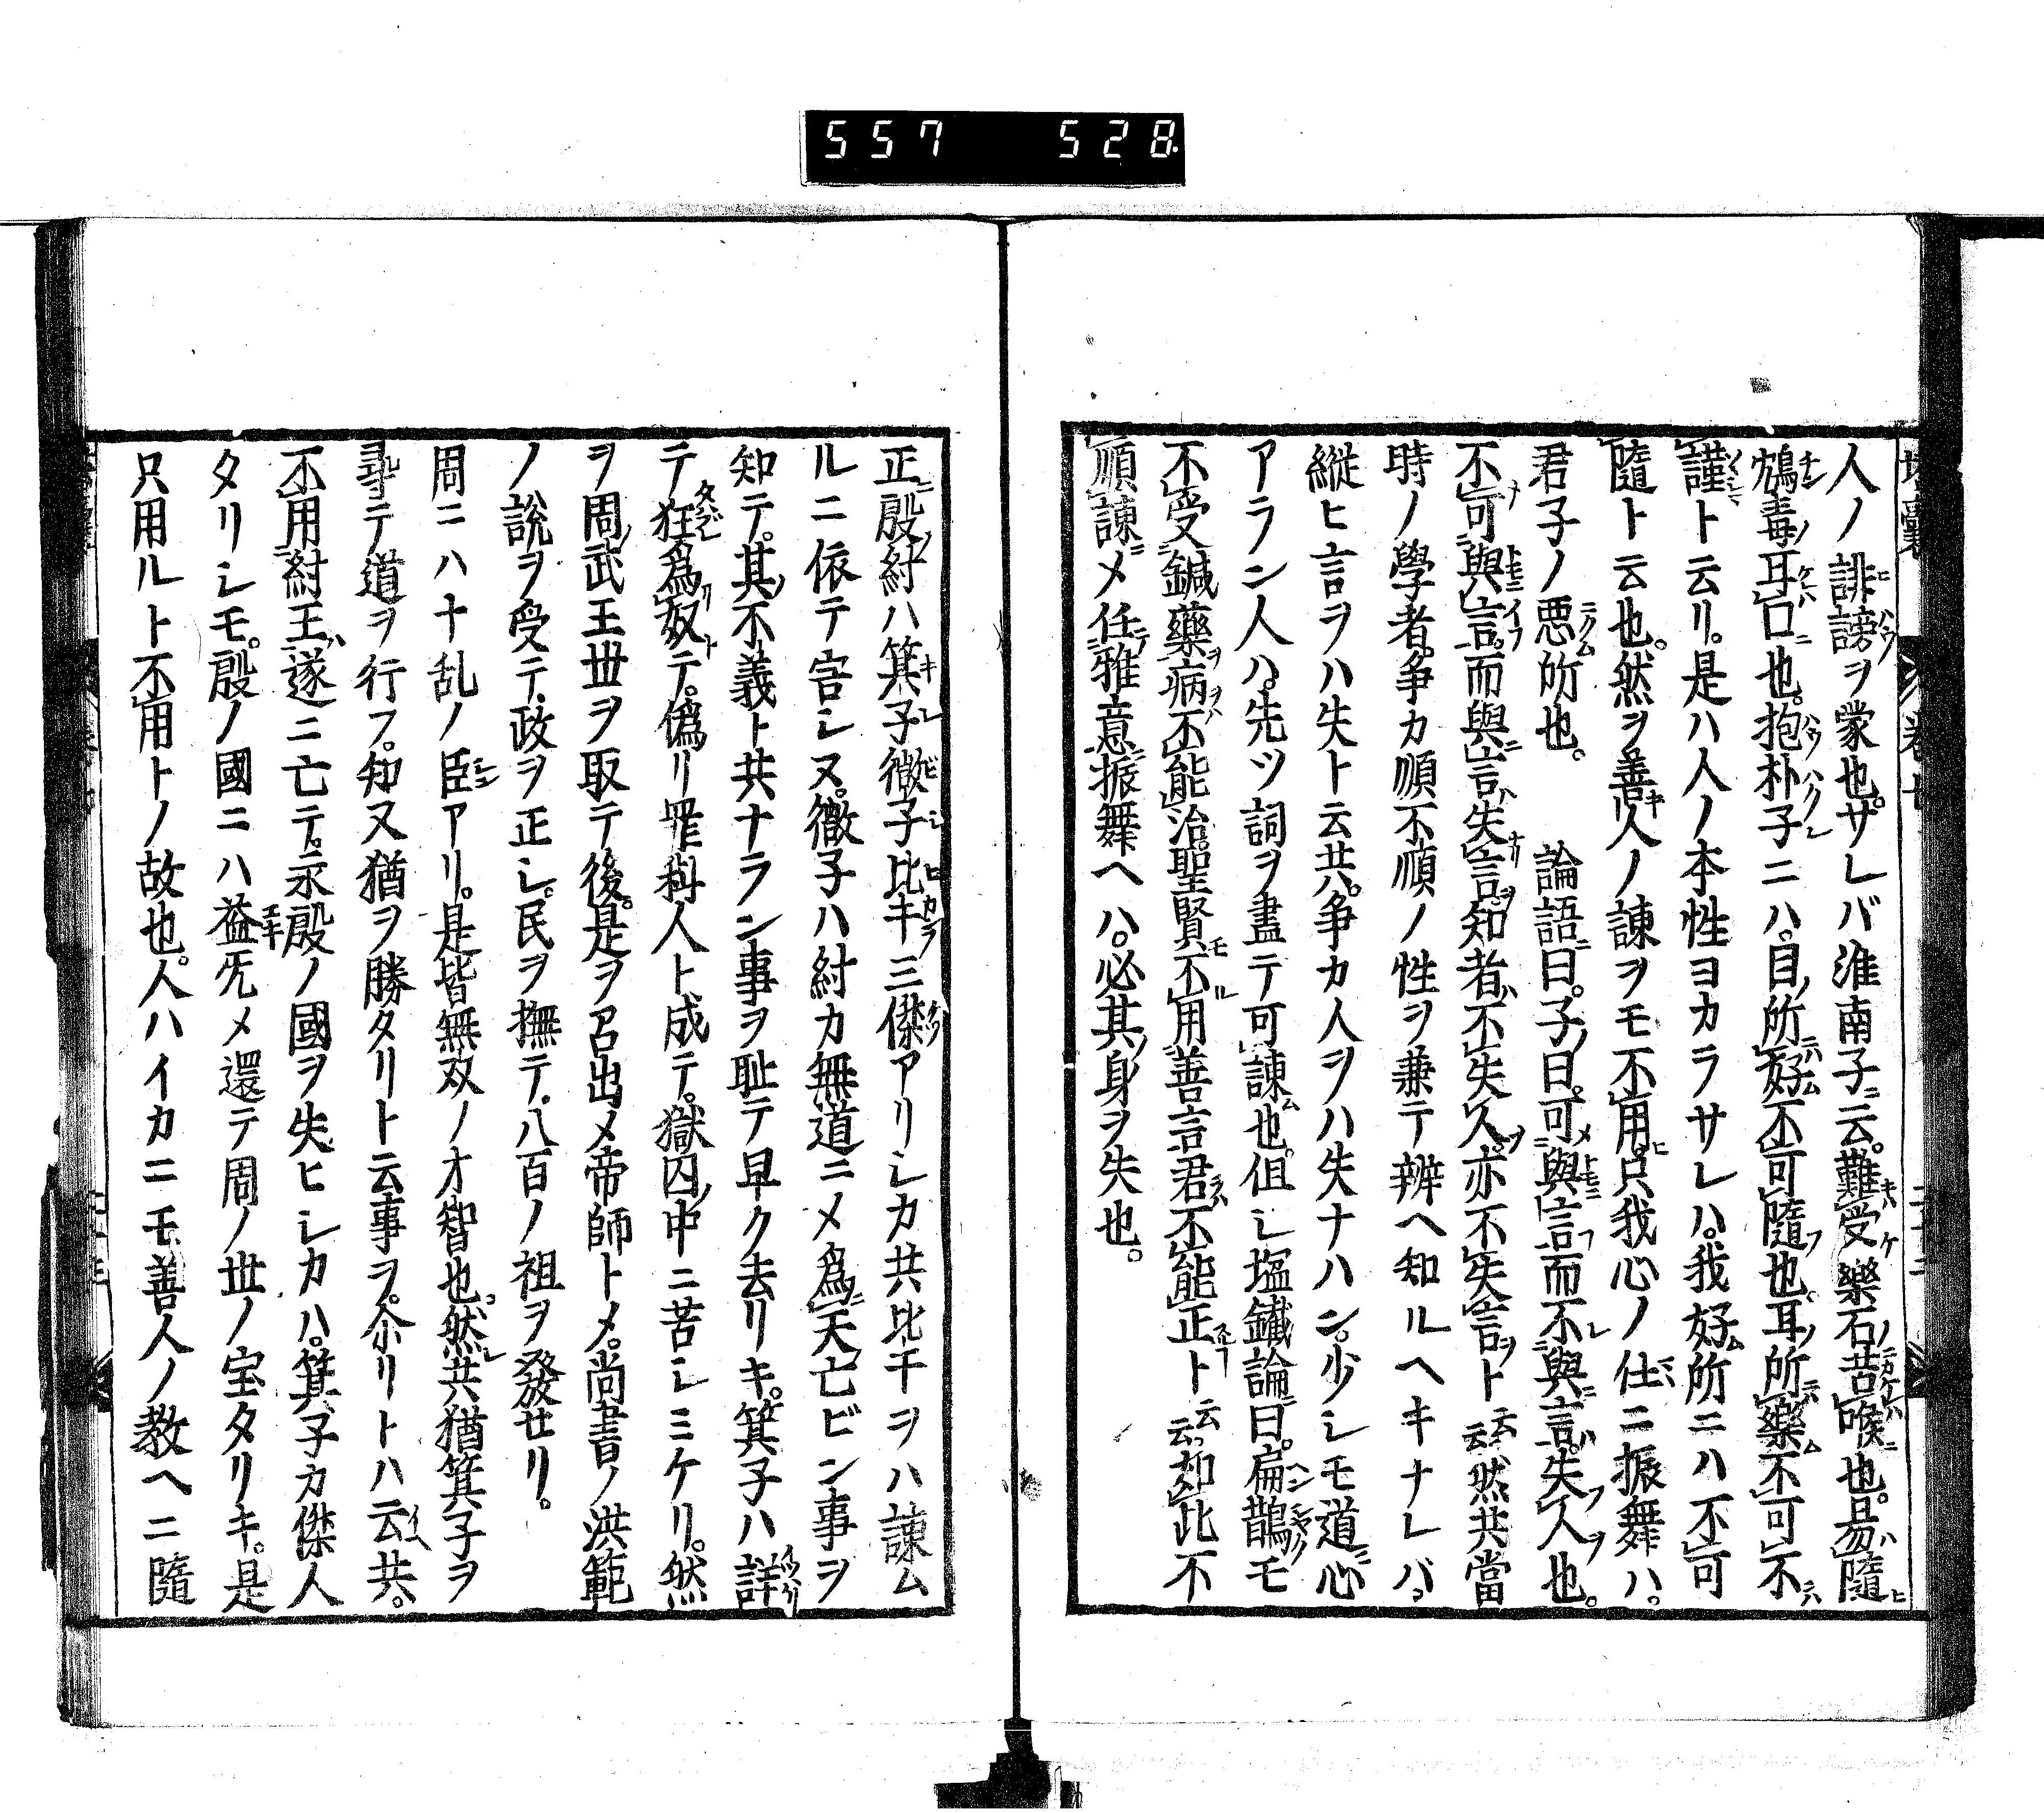 557 528.
人ノ誹謗ヲ蒙也。サレバ淮南子云。難受藥石苦喉也。易隨
鴆毒耳口也。抱朴子ニハ。目所好不可隨也。耳所樂不可不
謹ト云リ。是ハ人ノ本性ヨカラサレハ。我好所ニハ不可
隨ト云也。然ヲ善人ノ諫ヲモ不用。只我心ノ仕ニ振舞ハ。
君子ノ悪所也。 論語曰。子曰。可與言而不與言。失人也。
不可與言。而與言失言。知者不失人。亦不失言ト云云。然共當
時ノ學者。争カ順不順ノ性ヲ兼テ辨ヘ知ルヘキナレバ。
縦ヒ言ヲハ失ト云共。争カ人ヲハ失ナハン。少シモ道心
アラン人ハ。先ツ詞ヲ盡テ可諫也。但シ塩鐵論曰。扁鵲モ
不受鍼藥病不能治。聖賢不用善言君不能正ト云云。如此不
順諫メ任雅意振舞ヘハ。必其身ヲ失也。
正殷紂ハ箕子微子比干三傑アリシカ共比干ヲハ諫ム
ルニ依テ害シヌ。微子ハ紂カ無道ニメ為天亡ビン事ヲ
知テ。其不義ト共ナラン事ヲ耻テ早ク去リキ。箕子ハ詳
テ狂為奴テ。偽リ罪科人ト成テ。獄囚中ニ苦シミケリ。然
ヲ周武王世ヲ取テ後。是ヲ召出メ帝師トメ。尚書ノ洪範
ノ説ヲ受テ。政ヲ正シ。民ヲ撫テ。八百ノ祖ヲ發セリ。
周ニハ十乱ノ臣アリ。是皆無双ノ才智也。然共猶箕子ヲ
尋テ道ヲ行フ。知又猶ヲ勝タリト云事ヲ。尒リトハ云共。
不用紂王。遂ニ亡テ。永殷ノ國ヲ失ヒシカハ。箕子カ傑人
タリシモ。殷ノ國ニハ益旡メ還テ周ノ世ノ宝タリキ。是
只用ルト不用トノ故也。人ハイカニモ善人ノ教ヘニ隨